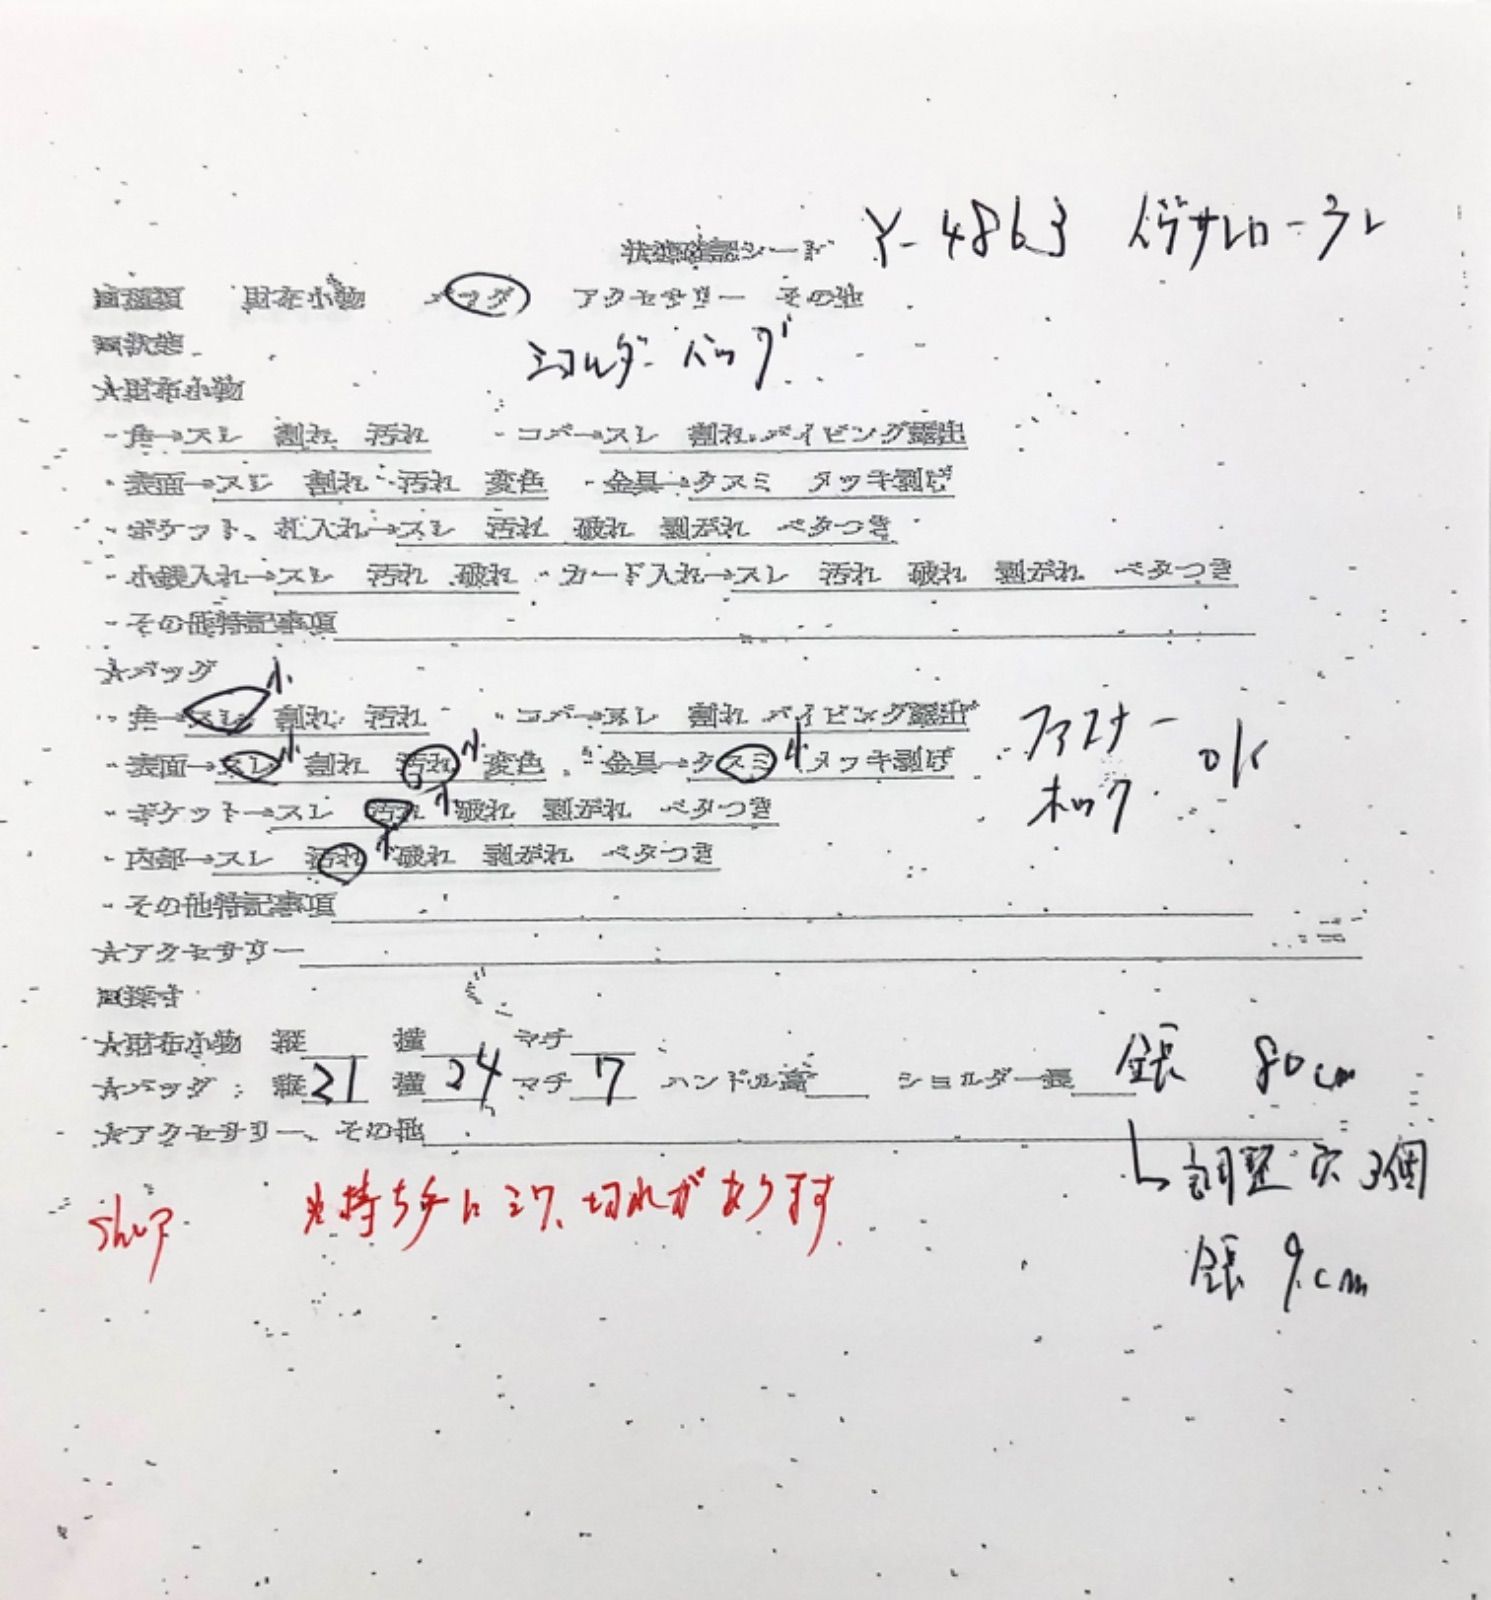 状態確認シート Y-4863 イヴサンローラン
■種類 財布小物 バッグ アクセサリー その他
■状態
ショルダーバッグ
★財布小物
・角→スレ 割れ 汚れ ・コバ→スレ 割れ パイピング露出
・表面→スレ 割れ 汚れ 変色 ・金具→クスミ メッキ剥げ
・ポケット、札入れ→スレ 汚れ 破れ 剥がれ ベタつき
・小銭入れ→スレ 汚れ 破れ ・カード入れ→スレ 汚れ 破れ 剥がれ ベタつき
・その他特記事項
★バッグ
・角→スレ 小 割れ 汚れ ・コバ→スレ 割れ パイピング露出
・表面→スレ 小 割れ 汚れ 小 変色 ・金具→クスミ 小 メッキ剥げ
・ポケット→スレ 汚れ 小 破れ 剥がれ ベタつき
・内部→スレ 汚れ 小 破れ 剥がれ ベタつき
ファスナー
ホック OK
・その他特記事項
★アクセサリー
■採寸
★財布小物 縦 横 マチ
★バッグ 縦21 横24 マチ7 ハンドル高 ショルダー長 全長 80cm
★アクセサリー、その他
↳調整穴3個
全長 9cm
※持ち手にシワ、切れがあります